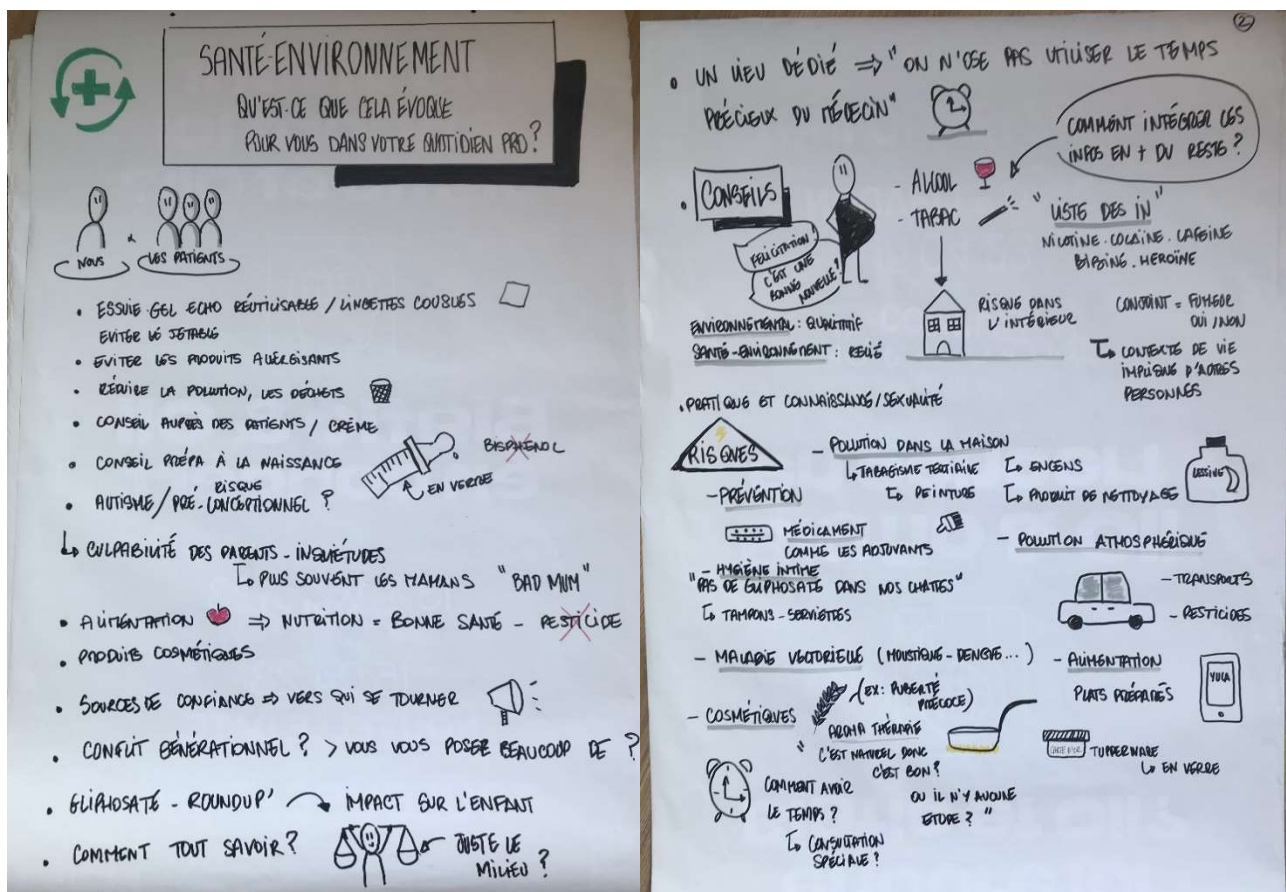 SANTÉ-ENVIRONNEMENT
QU'EST-CE QUE CELA ÉVOQUE
POUR VOUS DANS VOTRE QUOTIDIEN PRO?
NOUS & LES PATIENTS
• ESSUIE-GEL ECHO RÉUTILISABLE / LINGETTES COUSUES
EVITER LE JETABLE
• EVITER LES PRODUITS ALLERGISANTS
• RÉDUIRE LA POLUTION, LES DÉCHETS
• CONSEIL AUPRÈS DES PATIENTS / CRÈME
• CONSEIL PRÉPA À LA NAISSANCE
BISPHENOL
EN VERRE
RISQUE
• AUTISME / PRÉ-CONCEPTIONNEL ?
CULPABILITÉ DES PARENTS - INQUIÉTUDES
PLUS SOUVENT LES MAMANS "BAD MUM"
• ALIMENTATION ⇒ NUTRITION = BONNE SANTÉ - PESTICIDE
• PRODUITS COSMÉTIQUES
• SOURCES DE CONFIANCE ⇒ VERS QUI SE TOURNER
• CONFLIT GÉNÉRATIONNEL ? > VOUS VOUS POSER BEAUCOUP DE ?
• GLIPHOSATE - ROUNDUP' IMPACT SUR L'ENFANT
• COMMENT TOUT SAVOIR ?
JUSTE LE
MILIEU ?
2
• UN LIEU DÉDIÉ ⇒ "ON N'OSE PAS UTILISER LE TEMPS
PRÉCIEUX DU MÉDECIN"
COMMENT INTÉGRER CES
INFOS EN + DU RESTE ?
• CONSEILS
- ALCOOL
- TABAC
"LISTE DES IN"
NICOTINE. COCAÏNE. CAFEINE
HEROÏNE
FELICITATION !
C'EST UNE
BONNE
NOUVELLE ?
ENVIRONNEMENTAL : QUALITATIF
SANTÉ-ENVIRONNEMENT : RELIÉ
RISQUE DANS
L'INTÉRIEUR
CONJOINT = FUMEUR
OUI / NON
CONTEXTE DE VIE
IMPLIQUE D'AUTRES
PERSONNES
• PRATIQUE ET CONNAISSANCE / SEXUALITÉ
RISQUES
- POLUTION DANS LA MAISON
TABAGISME TERTIAIRE
ENCENS
PEINTURE
PRODUIT DE NETTOYAGE
LESSIVE
- PRÉVENTION
MÉDICAMENT
COMME LES ADJUVANTS
- HYGIÈNE INTIME
"PAS DE GLIPHOSATE DANS NOS CHATTES"
TAMPONS - SERVIETTES
- POLUTION ATMOSPHÉRIQUE
- TRANSPORTS
- PESTICIDES
- MALADIE VECTORIELLE (MOUSTIQUE - DENGUE...)
- ALIMENTATION
PLATS PRÉPARÉS
YUCA
- COSMÉTIQUES
(EX: PUBERTÉ
PRÉCOCE)
AROMA THÉRAPIE
"C'EST NATUREL DONC
C'EST BON ?
OU IL N'Y AUCUNE
ETUDE ?"
TUPPERWARE
EN VERRE
COMMENT AVOIR
LE TEMPS ?
CONSULTATION
SPÉCIALE ?